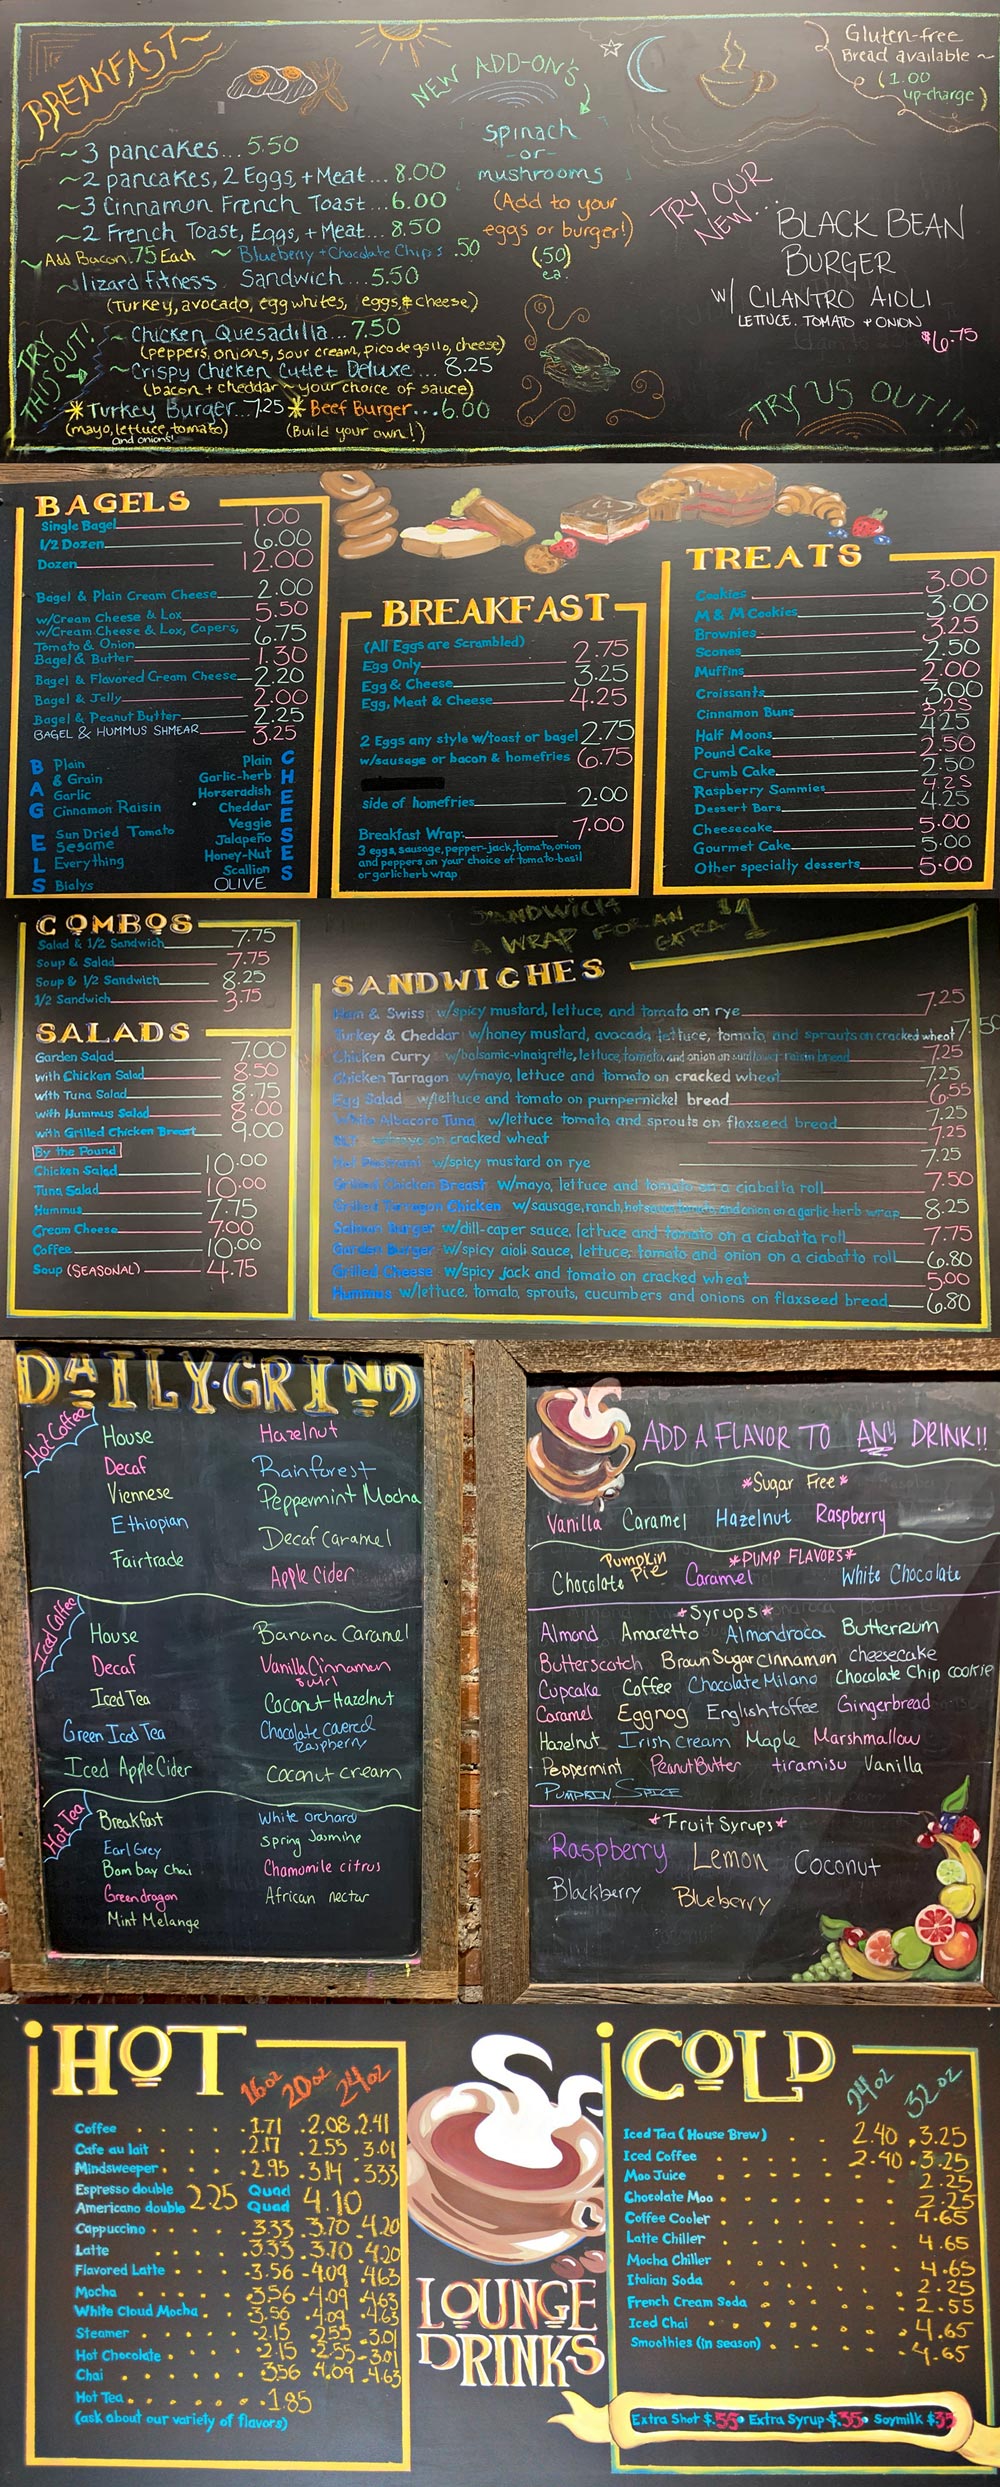 BREAKFAST~
~3 pancakes... 5.50
~2 pancakes, 2 Eggs, + Meat... 8.00
~3 Cinnamon French Toast... 6.00
~2 French Toast, Eggs, + Meat... 8.50
~Add Bacon .75 Each ~ Blueberry + Chocolate Chips .50
~lizard fitness Sandwich... 5.50
(Turkey, avocado, egg whites, eggs & cheese)
TRY THIS OUT!
~Chicken Quesadilla... 7.50
(peppers, onions, sour cream, pico de gallo, cheese)
~Crispy Chicken Cutlet Deluxe... 8.25
(bacon + cheddar ~ your choice of sauce)
Turkey Burger...7.25 Beef Burger...6.00
(mayo, lettuce, tomato) (Build your own!)
and onions!
NEW ADD-ON'S
Spinach
-or-
mushrooms
(Add to your
eggs or burger!)
(.50)
ea.
Gluten-free
Bread available ~
(1.00
up-charge)
TRY OUR
NEW...
BLACK BEAN
BURGER
w/ CILANTRO AIOLI
LETTUCE. TOMATO + ONION
$6.75
TRY US OUT!!
BAGELS
Single Bagel 1.00
1/2 Dozen 6.00
Dozen 12.00
Bagel & Plain Cream Cheese 2.00
w/Cream Cheese & Lox 5.50
w/Cream Cheese & Lox, Capers,
Tomato & Onion 6.75
Bagel & Butter 1.30
Bagel & Flavored Cream Cheese 2.20
Bagel & Jelly 2.00
Bagel & Peanut Butter 2.25
BAGEL & HUMMUS SHMEAR 3.25
BAGELS
Plain
& Grain
Garlic
Cinnamon Raisin
Sun Dried Tomato
Sesame
Everything
Bialys
CHEESES
Plain
Garlic-herb
Horseradish
Cheddar
Veggie
Jalapeño
Honey-Nut
Scallion
OLIVE
BREAKFAST
(All Eggs are Scrambled)
Egg Only 2.75
Egg & Cheese 3.25
Egg, Meat & Cheese 4.25
2 Eggs any style w/toast or bagel 2.75
w/sausage or bacon & homefries 6.75
side of homefries 2.00
Breakfast Wrap: 7.00
3 eggs, sausage, pepper-jack, tomato, onion
and peppers on your choice of tomato-basil
or garlic herb wrap
TREATS
Cookies 3.00
M & M Cookies 3.00
Brownies 3.25
Scones 2.50
Muffins 2.00
Croissants 3.00
Cinnamon Buns 3.25
Half Moons 4.25
Pound Cake 2.50
Crumb Cake 2.50
Raspberry Sammies 4.25
Dessert Bars 4.25
Cheesecake 5.00
Gourmet Cake 5.00
Other specialty desserts 5.00
COMBOS
Salad & 1/2 Sandwich 7.75
Soup & Salad 7.75
Soup & 1/2 Sandwich 8.25
1/2 Sandwich 3.75
SALADS
Garden Salad 7.00
with Chicken Salad 8.50
with Tuna Salad 8.75
with Hummus Salad 8.00
with Grilled Chicken Breast 9.00
By the Pound
Chicken Salad 10.00
Tuna Salad 10.00
Hummus 7.75
Cream Cheese 7.00
Coffee 10.00
Soup (SEASONAL) 4.75
SANDWICH
A WRAP FOR AN EXTRA $1
SANDWICHES
Ham & Swiss w/spicy mustard, lettuce, and tomato on rye 7.25
Turkey & Cheddar w/honey mustard, avocado, lettuce, tomato, and sprouts on cracked wheat 7.50
Chicken Curry w/balsamic-vinaigrette, lettuce, tomato, and onion on sunflower raisin bread 7.25
Chicken Tarragon w/mayo, lettuce and tomato on cracked wheat 7.25
Egg Salad w/lettuce and tomato on pumpernickel bread 6.55
White Albacore Tuna w/lettuce tomato and sprouts on flaxseed bread 7.25
BLT w/mayo on cracked wheat 7.25
Hot Pastrami w/spicy mustard on rye 7.25
Grilled Chicken Breast w/mayo, lettuce and tomato on a ciabatta roll 7.50
Grilled Tarragon Chicken w/sausage, ranch, hot sauce, tomato, and onion on a garlic herb wrap 8.25
Salmon Burger w/dill-caper sauce, lettuce and tomato on a ciabatta roll 7.75
Garden Burger w/spicy aioli sauce, lettuce, tomato and onion on a ciabatta roll 6.80
Grilled Cheese w/spicy jack and tomato on cracked wheat 5.00
Hummus w/lettuce, tomato, sprouts, cucumbers and onions on flaxseed bread 6.80
DAILY·GRIND
Hot Coffee
House Hazelnut
Decaf Rainforest
Viennese Peppermint Mocha
Ethiopian Decaf Caramel
Fairtrade Apple Cider
Iced Coffee
House Banana Caramel
Decaf Vanilla Cinnamon swirl
Iced Tea Coconut Hazelnut
Green Iced Tea Chocolate covered Raspberry
Iced Apple Cider Coconut cream
Hot Tea
Breakfast White orchard
Earl Grey Spring Jasmine
Bombay Chai Chamomile citrus
Green dragon African nectar
Mint Melange
ADD A FLAVOR TO ANY DRINK!!
*Sugar Free*
Vanilla Caramel Hazelnut Raspberry
*PUMP FLAVORS*
Chocolate Pumpkin Pie Caramel White Chocolate
*Syrups*
Almond Amaretto Almondroca Butterrum
Butterscotch Brown Sugar cinnamon cheesecake
Cupcake Coffee Chocolate Milano Chocolate Chip cookie
Caramel Eggnog English toffee Gingerbread
Hazelnut Irish cream Maple Marshmallow
Peppermint Peanut Butter tiramisu Vanilla
PUMPKIN SPICE
*Fruit Syrups*
Raspberry Lemon Coconut
Blackberry Blueberry
HOT
16oz 20oz 24oz
Coffee 1.71 2.08 2.41
Cafe au lait 2.17 2.55 3.01
Mindsweeper 2.95 3.14 3.33
Espresso double Quad
Americano double 2.25 Quad 4.10
Cappuccino 3.33 3.70 4.20
Latte 3.33 3.70 4.20
Flavored Latte 3.56 4.09 4.63
Mocha 3.56 4.09 4.63
White Cloud Mocha 3.56 4.09 4.63
Steamer 2.15 2.55 3.01
Hot Chocolate 2.15 2.55 3.01
Chai 3.56 4.09 4.63
Hot Tea 1.85
(ask about our variety of flavors)
LOUNGE
DRINKS
COLD
24oz 32oz
Iced Tea (House Brew) 2.40 3.25
Iced Coffee 2.40 3.25
Moo Juice 2.25
Chocolate Moo 2.25
Coffee Cooler 4.65
Latte Chiller 4.65
Mocha Chiller 4.65
Italian Soda 2.25
French Cream Soda 2.55
Iced Chai 4.65
Smoothies (in season) 4.65
Extra Shot $.55 • Extra Syrup $.35 • Soymilk $35